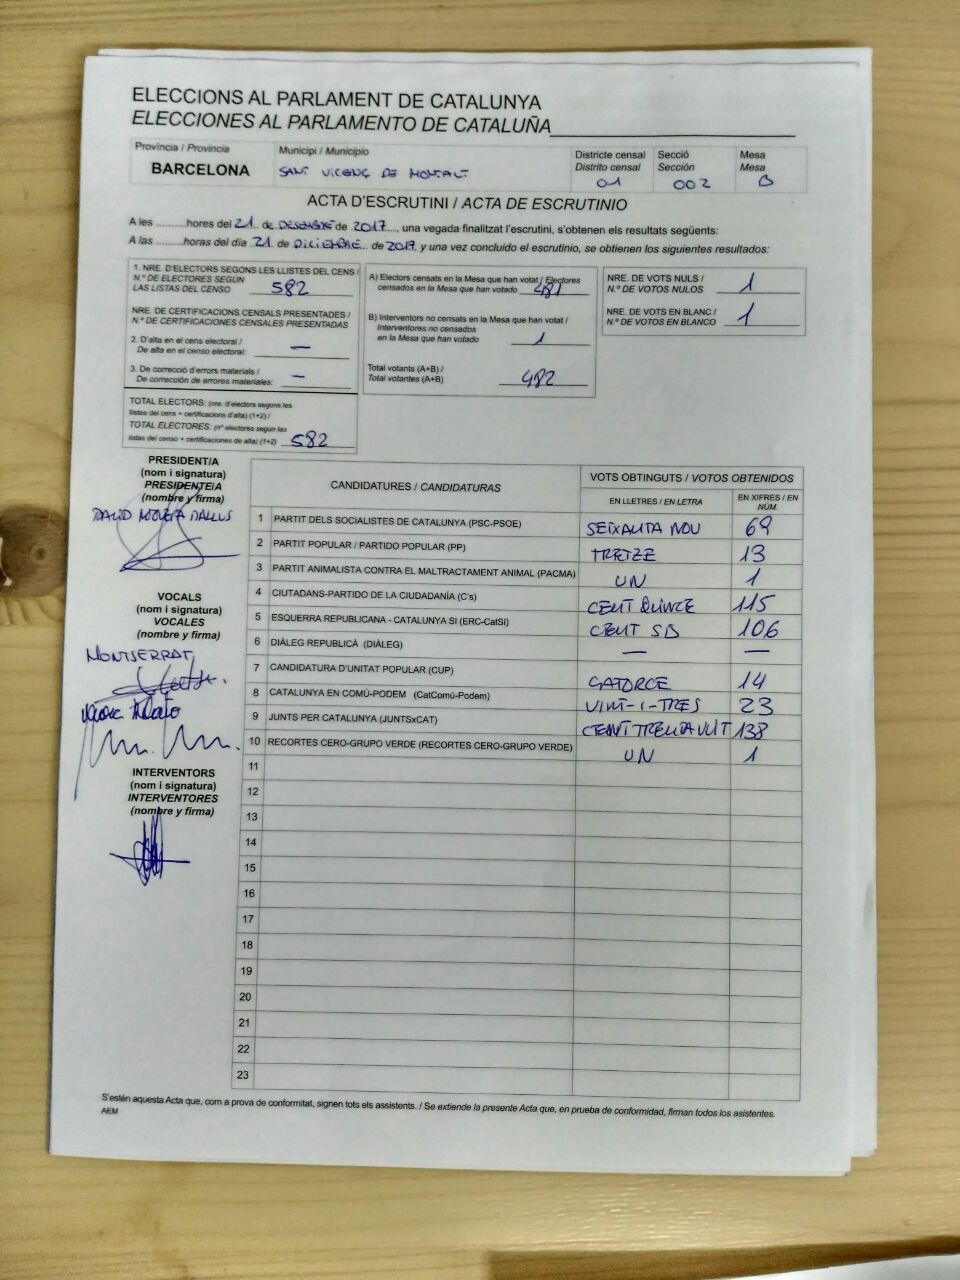 ELECCIONS AL PARLAMENT DE CATALUNYA
ELECCIONES AL PARLAMENTO DE CATALUÑA
Província / Provincia
BARCELONA
Municipi / Municipio
SANT VICENÇ DE MONTALT
Districte censal
Distrito censal
01
Secció
Sección
002
Mesa
Mesa
B
ACTA D'ESCRUTINI / ACTA DE ESCRUTINIO
A les ..........hores del 21 de DESEMBRE de 2017..., una vegada finalitzat l'escrutini, s'obtenen els resultats següents:
A las ..........horas del día 21 de DICIEMBRE... de 2017 y una vez concluido el escrutinio, se obtienen los siguientes resultados:
1. NRE. D'ELECTORS SEGONS LES LLISTES DEL CENS /
N.º DE ELECTORES SEGÚN
LAS LISTAS DEL CENSO 582
NRE. DE CERTIFICACIONS CENSALS PRESENTADES /
N.º DE CERTIFICACIONES CENSALES PRESENTADAS
2. D'alta en el cens electoral /
De alta en el censo electoral: —
3. De correcció d'errors materials /
De corrección de errores materiales: —
TOTAL ELECTORS: (nre. d'electors segons les
llistes del cens + certificacions d'alta) (1+2) /
TOTAL ELECTORES: (nº electores según las
listas del censo + certificaciones de alta) (1+2) 582
A) Electors censats en la Mesa que han votat / Electores
censados en la Mesa que han votado 481
B) Interventors no censats en la Mesa que han votat /
Interventores no censados
en la Mesa que han votado 1
Total votants (A+B) /
Total votantes (A+B) 482
NRE. DE VOTS NULS /
N.º DE VOTOS NULOS 1
NRE. DE VOTS EN BLANC /
N.º DE VOTOS EN BLANCO 1
PRESIDENT/A
(nom i signatura)
PRESIDENTE/A
(nombre y firma)
DAVID
VOCALS
(nom i signatura)
VOCALES
(nombre y firma)
MONTSERRAT
INTERVENTORS
(nom i signatura)
INTERVENTORES
(nombre y firma)
CANDIDATURES / CANDIDATURAS
VOTS OBTINGUTS / VOTOS OBTENIDOS
EN LLETRES / EN LETRA
EN XIFRES / EN NÚM.
1 PARTIT DELS SOCIALISTES DE CATALUNYA (PSC-PSOE) SEIXANTA NOU 69
2 PARTIT POPULAR / PARTIDO POPULAR (PP) TRETZE 13
3 PARTIT ANIMALISTA CONTRA EL MALTRACTAMENT ANIMAL (PACMA) UN 1
4 CIUTADANS-PARTIDO DE LA CIUDADANÍA (C's) CENT QUINCE 115
5 ESQUERRA REPUBLICANA - CATALUNYA SÍ (ERC-CatSí) CENT SIS 106
6 DIÀLEG REPUBLICÀ (DIÀLEG) — —
7 CANDIDATURA D'UNITAT POPULAR (CUP) CATORCE 14
8 CATALUNYA EN COMÚ-PODEM (CatComú-Podem) VINT-I-TRES 23
9 JUNTS PER CATALUNYA (JUNTSxCAT) CENT TRENTA VUIT 138
10 RECORTES CERO-GRUPO VERDE (RECORTES CERO-GRUPO VERDE) UN 1
11
12
13
14
15
16
17
18
19
20
21
22
23
S'estén aquesta Acta que, com a prova de conformitat, signen tots els assistents. / Se extiende la presente Acta que, en prueba de conformidad, firman todos los asistentes.
AEM